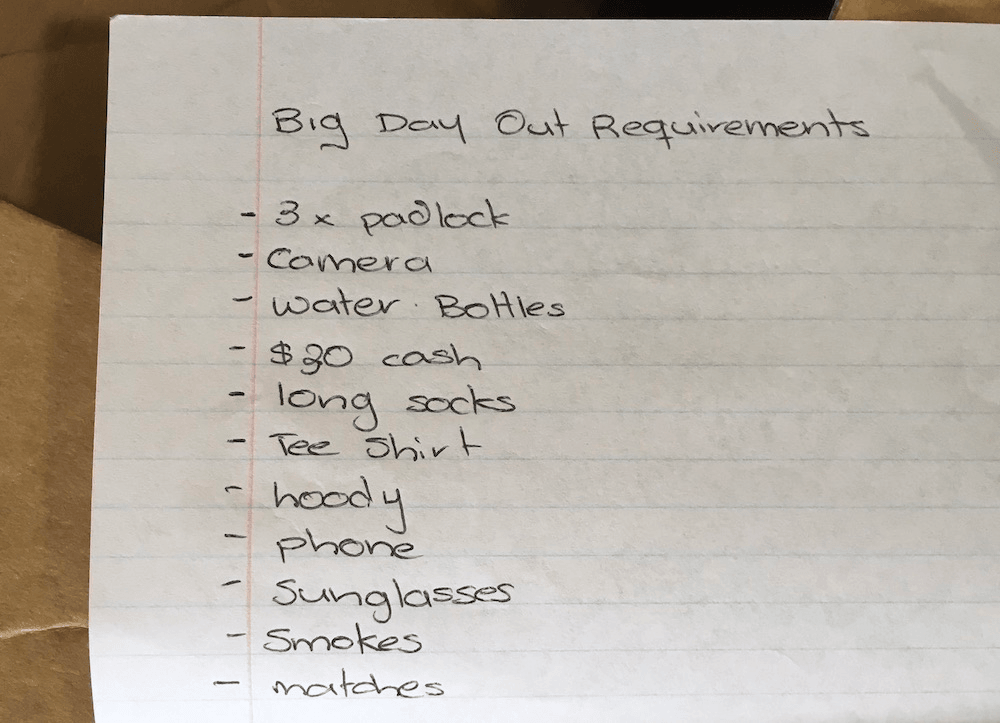 Big Day Out Requirements
- 3 x padlock
- Camera
- Water Bottles
- $30 cash
- long socks
- Tee Shirt
- hoody
- phone
- Sunglasses
- Smokes
- matches